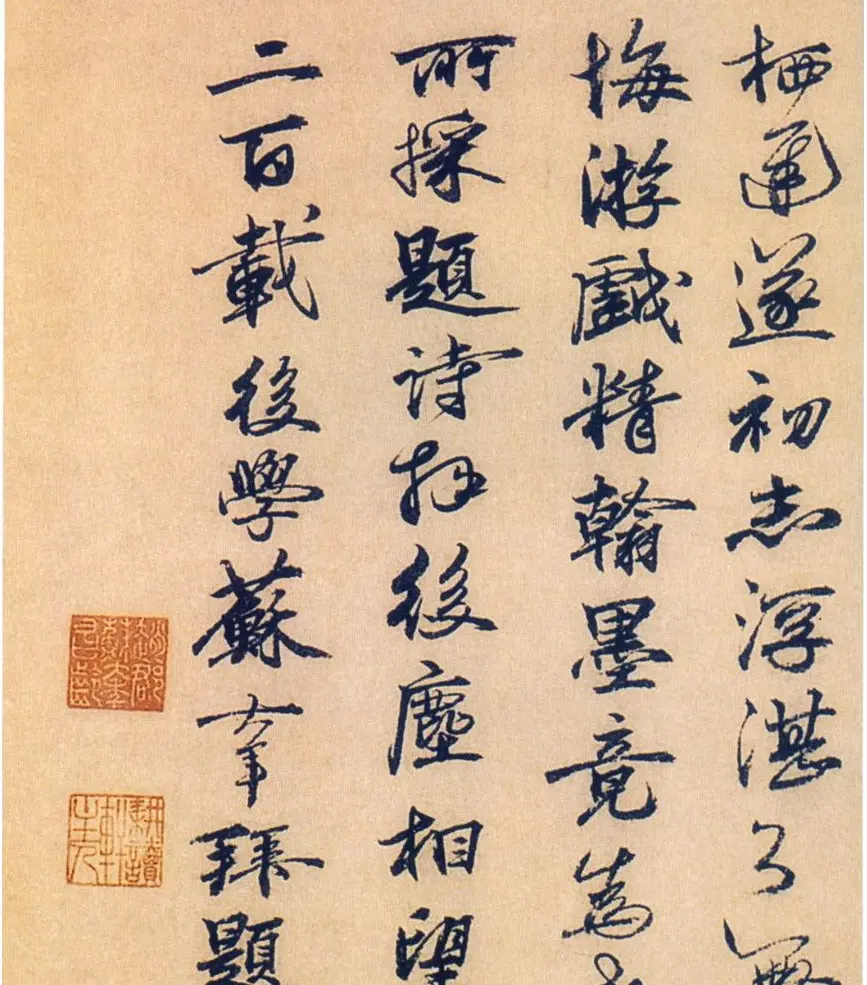 栖遁遂初志浮湛了無
悔游戲精翰墨竟為
所採題詩拜後塵相望
二百載後學蘇大年拜題